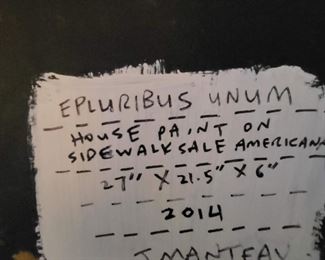 EPLURIBUS UNUM
HOUSE PAINT ON
SIDEWALK SALE AMERICANA
27" X 21.5" X 6"
2014
J. MANTEAU